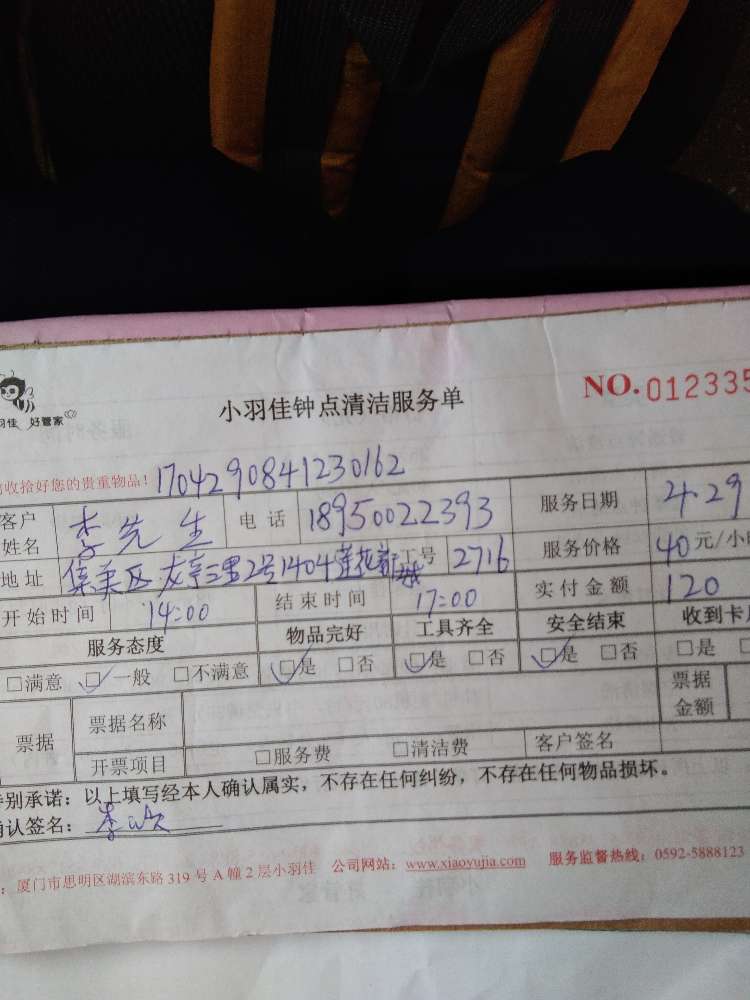 小羽佳钟点清洁服务单
NO.012335
羽佳 好管家
收拾好您的贵重物品! 1704290841230162
客户姓名 李先生 电话 18950022393 服务日期 4.29
地址 集美区龙亭三里2号1404莲花新城 工号 2716 服务价格 40元/小
开始时间 14:00 结束时间 17:00 实付金额 120
服务态度 物品完好 工具齐全 安全结束 收到卡
□满意 □一般 □不满意 □是 □否 □是 □否 □是 □否 □是
票据 票据名称 票据金额
开票项目 □服务费 □清洁费 客户签名
特别承诺:以上填写经本人确认属实,不存在任何纠纷,不存在任何物品损坏。
确认签名: 李
:厦门市思明区湖滨东路319号A幢2层小羽佳 公司网站:www.xiaoyujia.com 服务监督热线:0592-5888123